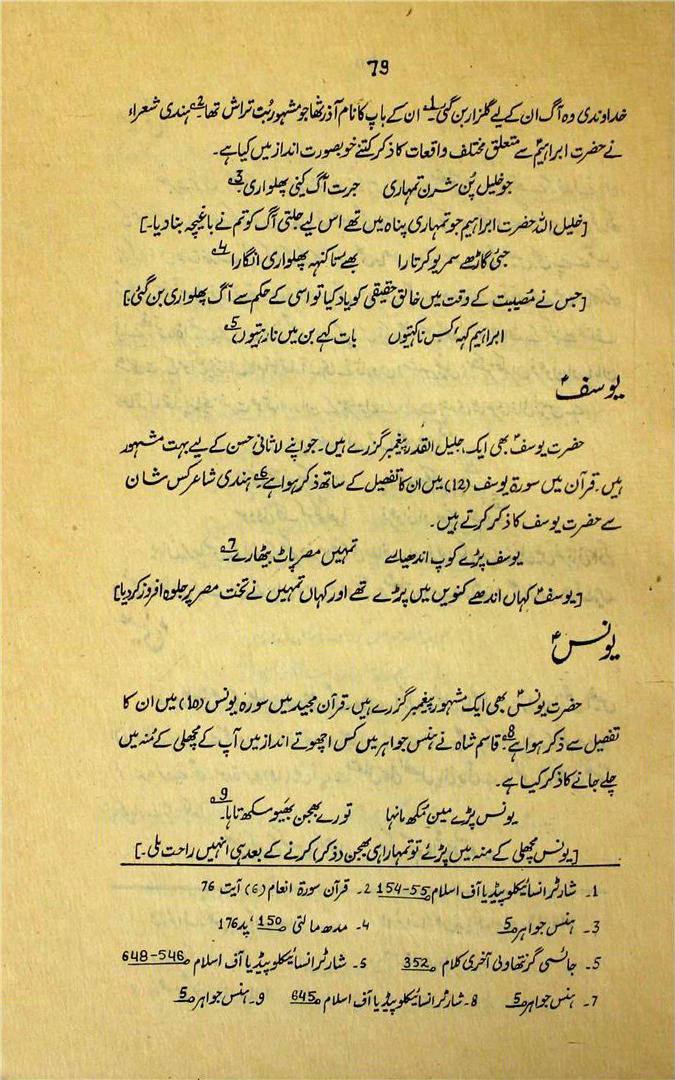 79
خداوندی وہ آگ ان کے لیے گلزار بن گئی۔1 ان کے باپ کا نام آذر تھا جو مشہور بُت تراش تھا۔2 ہندی شعراء
نے حضرت ابراہیمؑ سے متعلق مختلف واقعات کا ذکر کتنے خوبصورت انداز میں کیا ہے۔
جو خلیل پُن شرن تمہاری جرت آگ کینی پھلواری۔3
[خلیل اللہ حضرت ابراہیم جو تمہاری پناہ میں تھے اس لیے جلتی آگ کو تم نے باغیچہ بنا دیا۔]
جئی گاڑھے سمریو کرتارا بھے ستا کنہہ پھلواری انگارا۔4
[جس نے مُصیبت کے وقت میں خالق حقیقی کو یاد کیا تو اسی کے حکم سے آگ پھلواری بن گئی]
ابراہیم کہہ، کس نا کہتیوں بات کہے بن میں نا رہتیوں۔5
یوسفؑ
حضرت یوسفؑ بھی ایک جلیل القدر پیغمبر گزرے ہیں۔ جو اپنے لاثانی حسن کے لیے بہت مشہور
ہیں۔ قرآن میں سورۃ یوسف (12) میں ان کا تفصیل کے ساتھ ذکر ہوا ہے۔6 ہندی شاعر کس شان
سے حضرت یوسف کا ذکر کرتے ہیں۔
یوسف پڑے کوپ اندھیارے تمہیں مصر پاٹ بیٹھارے۔7
[یوسفؑ کہاں اندھے کنویں میں پڑے تھے اور کہاں تمہیں نے تخت مصر پر جلوہ افروز کر دیا]
یونسؑ
حضرت یونسؑ بھی ایک مشہور پیغمبر گزرے ہیں۔ قرآن مجید میں سورہ یونس (10) میں ان کا
تفصیل سے ذکر ہوا ہے۔8 قاسم شاہ نے ہنس جواہر میں کس اچھوتے انداز میں آپ کے مچھلی کے مُنہ میں
چلے جانے کا ذکر کیا ہے۔
یونس پڑے مین مکھ مانہا تورے بھجن بھیو سکھ تاہا۔9
[یونس مچھلی کے منہ میں پڑے تو تمہارا ہی بھجن (ذکر) کرنے کے بعد ہی انہیں راحت ملی۔]
1۔ شارٹر انسائیکلوپیڈیا آف اسلام 55-154 2۔ قرآن سورۃ انعام (6) آیت 76
3۔ ہنس جواہر 5 4۔ مدھ مالتی 150، پد 176
5۔ جائسی گرنتھاولی آخری کلام 352 5۔ شارٹر انسائیکلوپیڈیا آف اسلام 546-648
7۔ ہنس جواہر 5 8۔ شارٹر انسائیکلوپیڈیا آف اسلام 645 9۔ ہنس جواہر 5